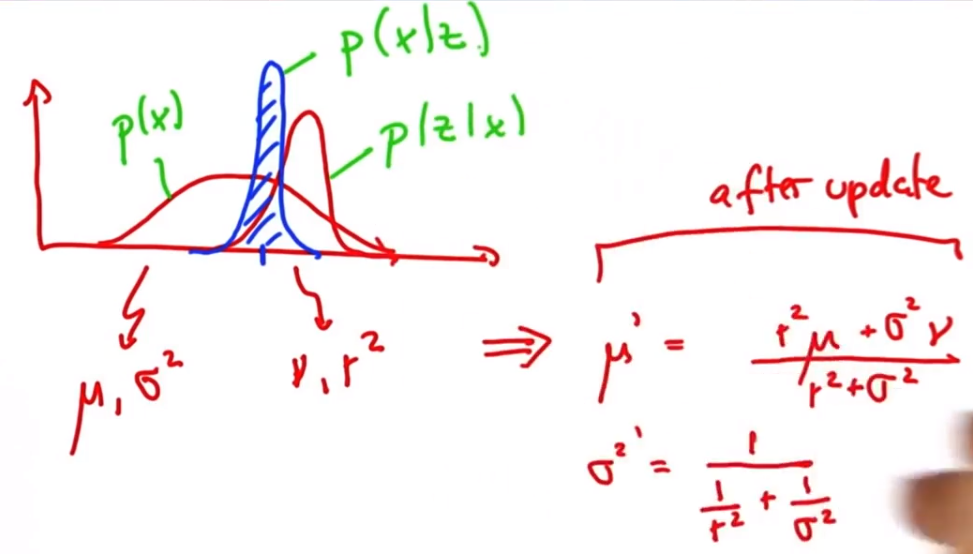 p(x|z)
p(x)
p(z|x)
after update
μ, σ²
ν, r²
⇒
μ' = (r²μ + σ²ν) / (r² + σ²)
σ²' = 1 / (1/r² + 1/σ²)